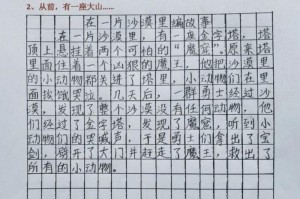 2、从前，有一座大山……
在一片沙漠里编故事
在一片沙漠里，有一座金字塔，塔
顶上悬挂着两个可怕的“魔宫”。原来塔
里面住着一个凶狠的魔王，他把沙漠里
的小动物都关进了塔里，小动物们在里
面挨饿哭泣。几天后，一群勇士经过沙
漠，发现了整个沙漠没有任何动物，他
们经过了金字塔，发现了魔宫，听到小
动物们的哭喊声，于是勇士们拿出了宝
剑，劈开了大门并赶走了魔王，救出了
所有的小动物。